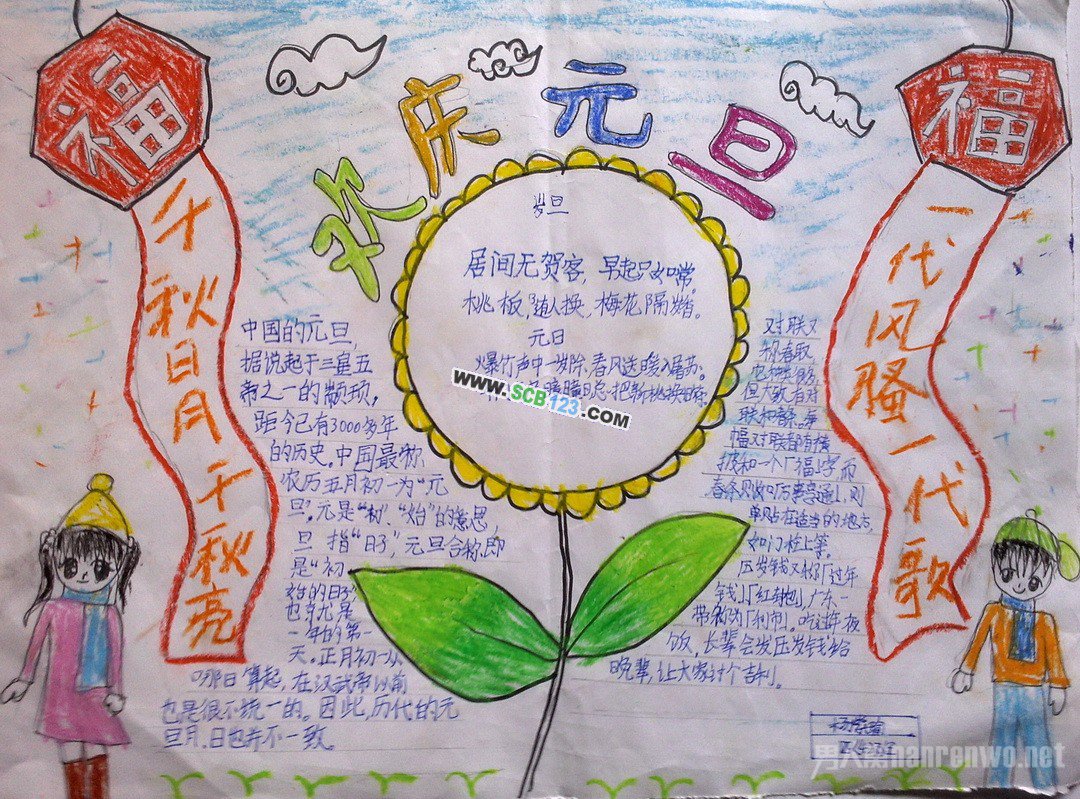 欢庆元旦
福
千秋日月千秋亮
福
一代风骚一代歌
岁旦
居间无贺客,早起只如常。
桃板随人换,梅花隔岁香。
元日
爆竹声中一岁除,春风送暖入屠苏。
瞳瞳日,总把新桃换旧符
www.SCB123.COM
中国的元旦,
据说起于三皇五
帝之一的颛顼,
距今已有3000多年
的历史。中国最称
农历五月初一为“元
旦”。元是“初”、“始”的意思,
旦指“日子”,元旦合称即
是“初
始的日子”
也就是
一年的第一
天。正月初一从
哪日算起,在汉武帝以前
也是很不统一的。因此,历代的元
旦月、日也并不一致。
对联又
称春联
但大致有对
联和
幅对联都有横
披和一个「福」字而
春条则如「万事亨通」,则
单贴在适当的地方,
如门柱上等。
压岁钱又称「过年
钱」「红封包」广东一
带称为「利市」。吃过年夜
饭,长辈会发压岁钱给
晚辈,让大家讨个吉利。
nanrenwo.net